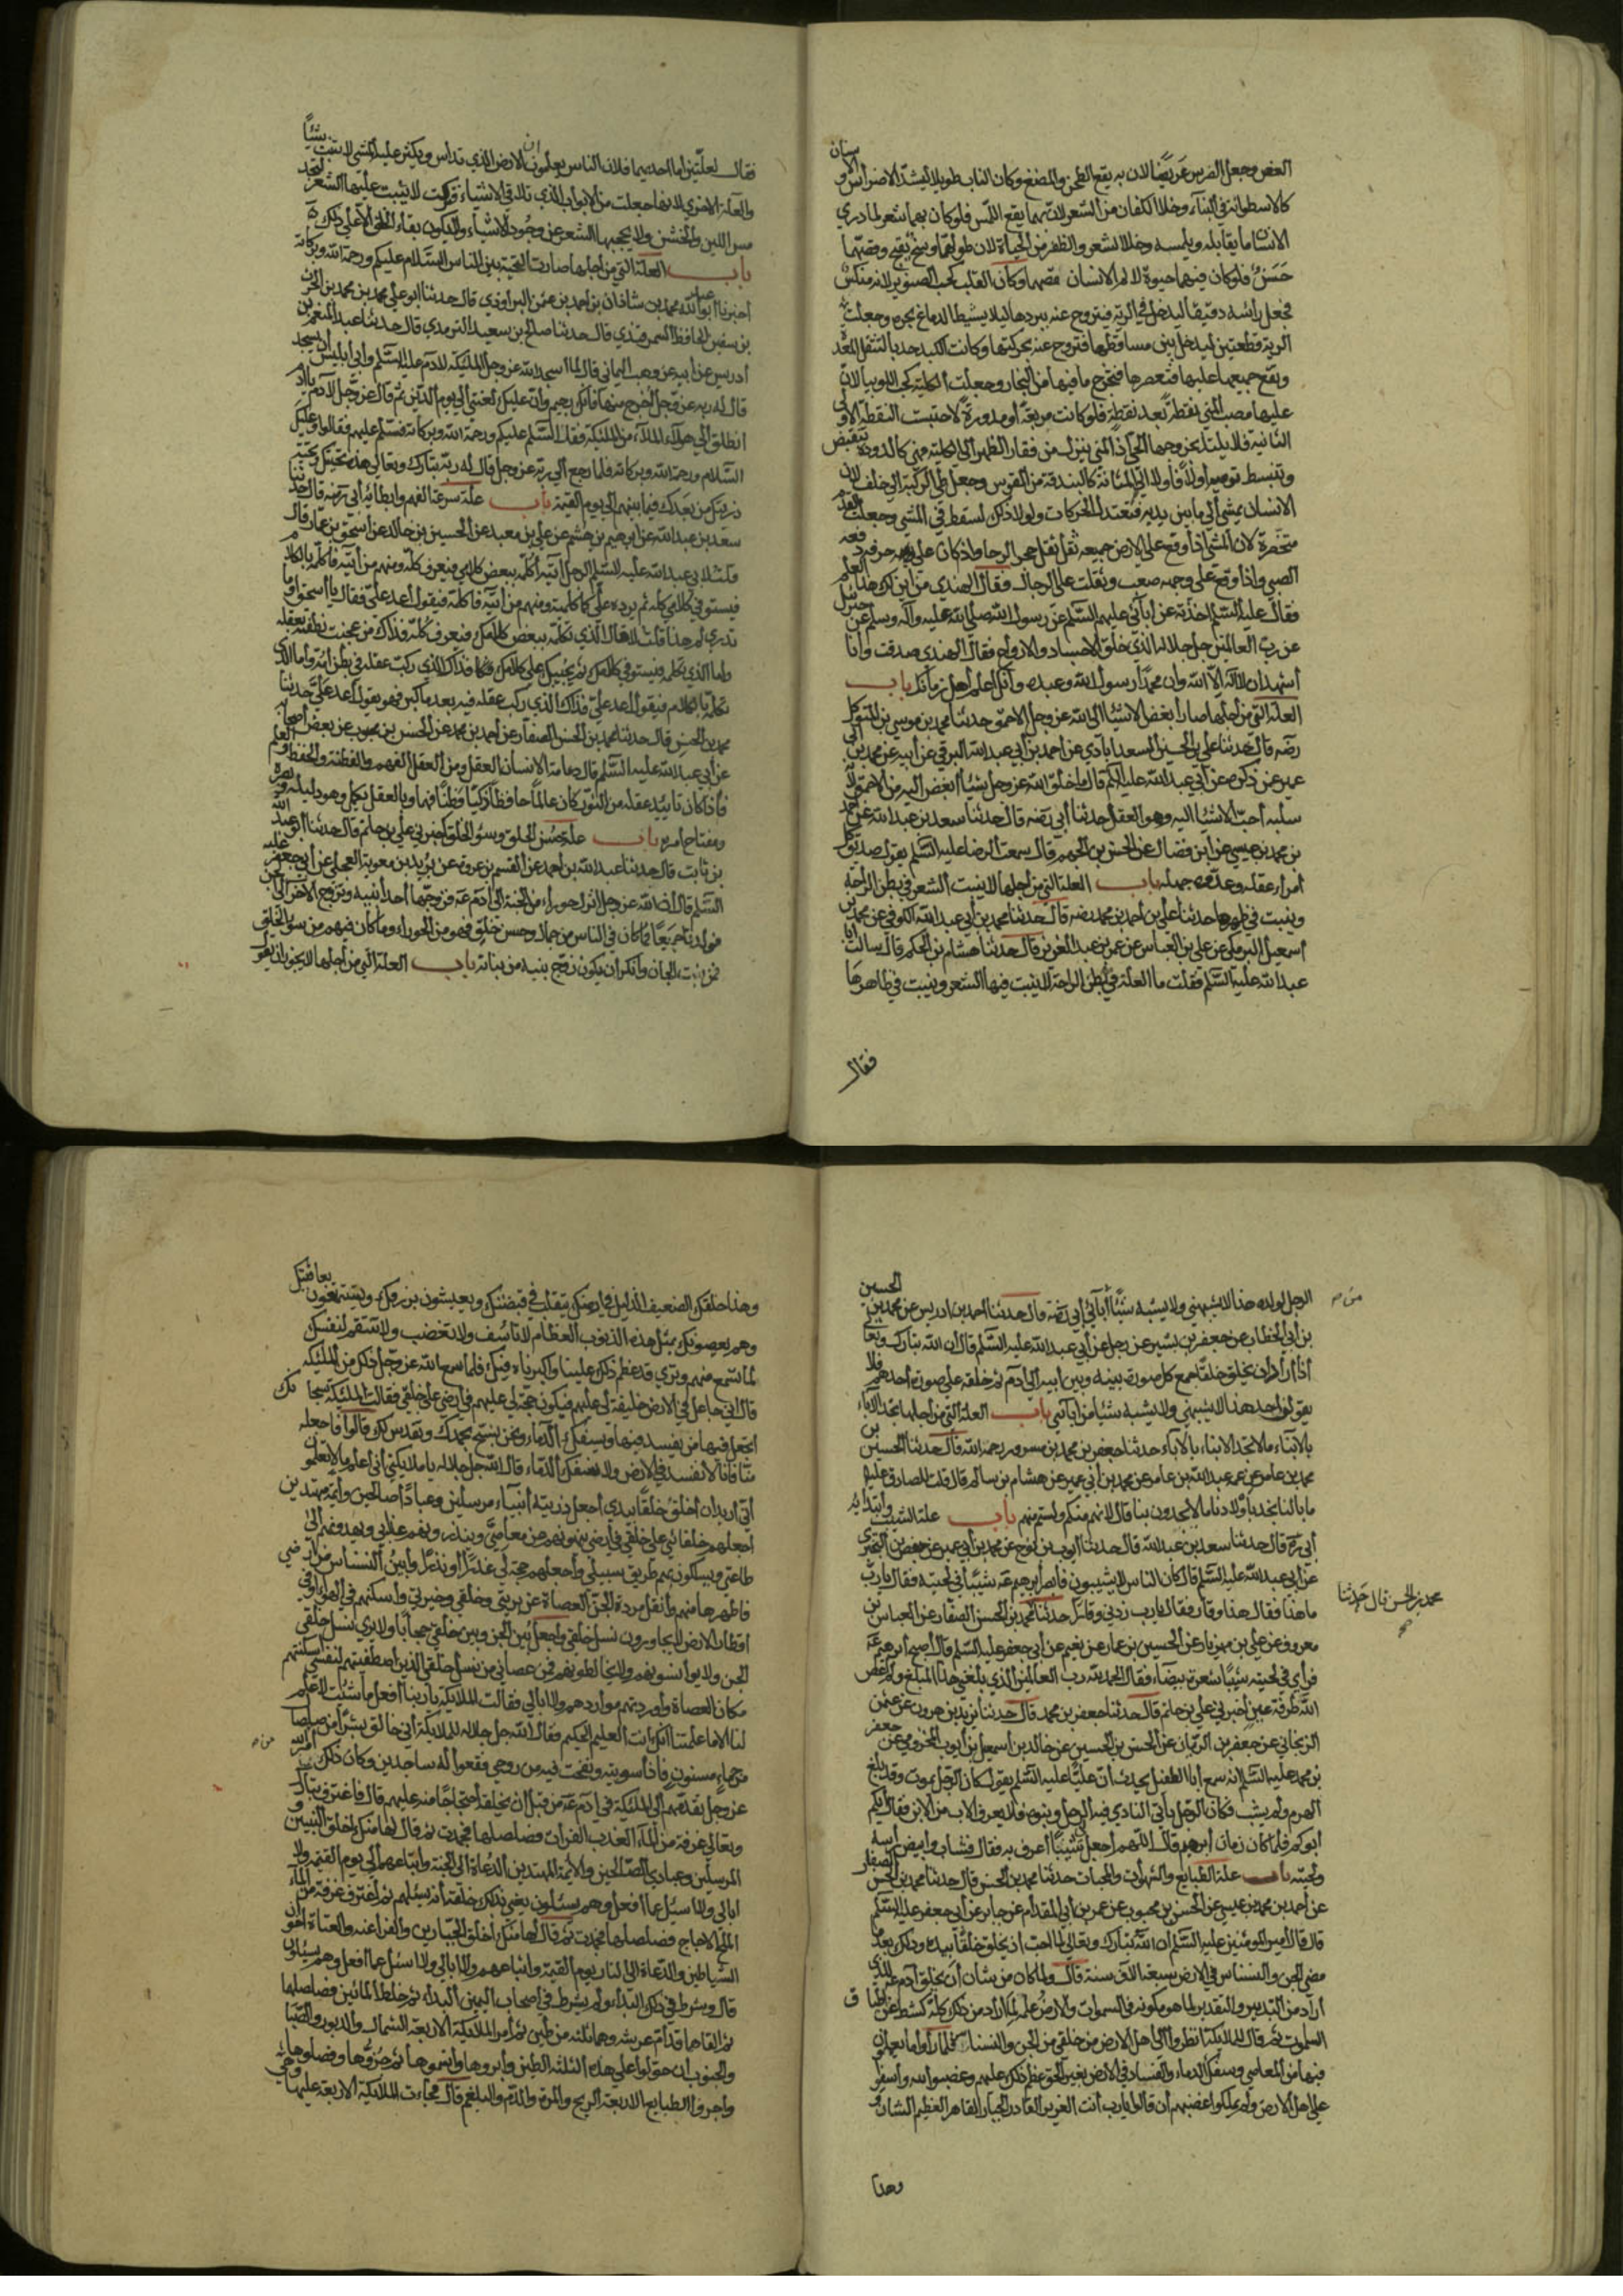 العض وجعل الضرس عريضًا لان به يقع الطحن والمضغ وكان الناب طويلا ليشتد الاضراس والاسنان
كالاسطوانة في البناء وخلا الكفان من الشعر لان بهما يقع اللمس فلو كان بهما شعر لما درى
الانسان ما يقابله ويلمسه وخلا الشعر والظفر من الحياة لان طولهما وسخ يقبح وقصهما
حَسَنٌ فلو كان فيهما حيوة لالم الانسان قصهما وكان القلب كحب الصنوبر لانه منكس
فجعل راسه دقيقا ليدخل في الرية فيتروح عنه ببردها ليلا يشيط الدماغ بحره وجعلت
الرية قطعتين ليدخل بين مساقطها فتروح عنه بحركتها وكانت الكبد حدبا لتثقل المعده
ويقع جميعها عليها فتعصرها فتخرج ما فيها من البخار وجعلت الكلية كحب اللوبيا لان
عليها مصب المني نقطة بعد نقطة فلو كانت مربعة او مدورة لاحتبست النقطة الاولى
الثانية فلا يلتذ بخروجها الحي اذ المني ينزل من فقار الظهر الى الكلية فهي كالدودة تنقبض
وتنبسط ترميه اولا فاولا الى المثانة كالبندقة من القوس وجعل طي الركبة الى خلف لان
الانسان يمشي الى ما بين يديه فتعتدل الحركات ولولا ذلك لسقط في المشي وجعلت القدم
متخصرة لان المشي اذا وقع على الارض جميعه ثقل ثقل حجر الرحا واذا كان على حرفه دفعه
الصبي واذا وقع على وجهه صعب ونقلت على الرجال فقال الهندي من اين لك هذا العلم
فقال عليه السلم اخذته عن آبائي عليهم السلم عن رسول الله صلى الله عليه وآله وسلم عن جبرئيل
عن رب العالمين جل جلاله الذي خلق الاجساد والارواح فقال الهندي صدقت وانا
أشهد ان لا اله الا الله وان محمدا رسول الله وعبده وانك اعلم اهل زمانك باب
العلة التي من اجلها صار ابغض الاشياء الى الله عز وجل الاحمق حدثنا محمد بن موسى بن المتوكل
رضه قال حدثنا علي بن الحسين السعدابادي عن احمد بن ابي عبد الله البرقي عن أبيه عن محمد بن ابي
عمير عمن ذكره عن أبي عبد الله عليه السلم قال ما خلق الله عز وجل شيئا ابغض اليه من الاحمق لانه
سلبه أحب الاشياء اليه وهو العقل حدثنا أبي رضه قال حدثنا سعد بن عبد الله عن احمد
بن محمد بن عيسى عن ابن فضال عن الحسن بن الجهم قال سمعت الرضا عليه السلم يقول صديق كل
امرء عقله وعدوه جهله باب العلة التي من اجلها لا ينبت الشعر في بطن الراحة
وينبت في ظهرها حدثنا علي بن احمد بن محمد رضه قال حدثنا محمد بن أبي عبد الله الكوفي عن محمد بن
اسمعيل البرمكي عن علي بن العباس عن عمر بن عبد العزيز قال حدثنا هشام بن الحكم قال سالت ابا
عبد الله عليه السلم فقلت ما العلة في بطن الراحة لا ينبت فيها الشعر وينبت في ظاهرها
فقال
فقال لعلتين اما احديهما فلان الناس يعلمون ان الارض الذي تداس ويكثر عليه المشي لا تنبت شيئًا
والعلة الاخرى لانها جعلت من الابواب الذي تلاقي الاشياء فتركت لا ينبت عليها الشعر لتجد
مس اللين والخشن ولا يحجبها الشعر عن وجود الاشياء ولا يكون بقاء الخلق الا على ذلك
باب العلة التي من اجلها صارت التحية بين الناس السلام عليكم ورحمة الله وبركاته
أخبرنا أبو عبد الله محمد بن شاذان بن احمد بن عثمن البراوذي قال حدثنا ابو علي محمد بن محمد بن الحرث
بن سفين الحافظ السمرقندي قال حدثنا صالح بن سعيد الترمذي قال حدثنا عبد المنعم بن
أدريس عن أبيه عن وهب اليماني قال لما اسجد الله عز وجل المليكة لادم عليه السلم وأبى ابليس ان يسجد
قال له ربه عز وجل اخرج منها فانك رجيم وان عليك لعنتي الى يوم الدين ثم قال عز وجل لادم يا ادم
انطلق الى هولاء الملاء من المليكة فقل السلم عليكم ورحمة الله وبركاته فسلم عليهم فقالوا وعليك
السلام ورحمة الله وبركاته فلما رجع الى ربه عز وجل قال له ربه تبارك وتعالى هذه تحيتك وتحية
ذريتك من بعدك فيما بينهم الى يوم القيمة باب علة سرعة الفهم وابطائه أبي رضه قال حدثنا
سعد بن عبد الله عن ابرهيم بن هشم عن علي بن معبد عن الحسين بن خالد عن اسحق بن عمار قال
قلت لابي عبد الله عليه السلم الرجل آتيه أكلمه ببعض كلامي فيعرف كله ومنهم من آتيه فاكلمه بالكلام
فيستوفي كلامي كله ثم يرده علي كما كلمته ومنهم من آتيه فاكلمه فيقول أعد علي فقال يا اسحق اوما
تدري لم هذا قلت لا قال الذي تكلمه ببعض كلامك فيعرف كله فذاك من عجنت نطفته بعقله
واما الذي تكلمه فيستوفي كلامك ثم يجيبك على كلامك فذاك الذي ركب عقله في بطن امه واما الذي
تكلمه بالكلام فيقول أعد علي فذاك الذي ركب عقله فيه بعد ما كبر فهو يقول أعد علي حدثنا
محمد بن الحسن قال حدثنا محمد بن الحسن الصفار عن احمد بن محمد عن الحسن بن محبوب عن بعض أصحابه
عن أبي عبد الله عليه السلم قال دعامة الانسان العقل ومن العقل الفهم والفطنة والحفظ والعلم
فاذا كان تاييد عقله من النور كان عالما حافظا زكيا فطنا فهما وبالعقل يكمل وهو دليله ومبصره
ومفتاح امره باب علة حسن الخلق وسوء الخلق اخبرني علي بن حاتم قال حدثنا أبو عبد الله
بن ثابت قال حدثنا عبد الله بن احمد عن القسم بن عروة عن بريد بن معوية العجلي عن أبي جعفر عليه
السلم قال ان الله عز وجل انزل حوراء من الجنة الى آدم عه فزوجها أحد أبنيه وتزوج الاخر الى الجن
فولدتا جميعًا فما كان في الناس من جمال وحسن خلق فهو من الحوراء وما كان فيهم من سوء الخلق
فمن بنت الجان وانكر ان يكون زوج بنيه من بناته باب العلة التي من أجلها لا يجوز ان يقول
الرجل لولده هذا لا يشبهني ولا يشبه شيئًا من آبائي أبي رضه قال حدثنا احمد بن ادريس عن محمد بن الحسين
بن ابي الخطاب عن جعفر بن بشير عن رجل عن أبي عبد الله عليه السلم قال ان الله تبارك وتعالى
اذا أراد ان يخلق خلقا جمع كل صورة بينه وبين أبيه الى آدم ثم خلقه على صورة أحدهم فلا
يقولن احد هذا لا يشبهني ولا يشبه شيئا من آبائي باب العلة التي من أجلها يجد الآباء
بالابناء ما لا يجد الابناء بالآباء حدثنا جعفر بن محمد بن مسرور رحمه الله قال حدثنا الحسين بن
محمد بن عامر عن عمه عبد الله بن عامر عن محمد بن أبي عمير عن هشام بن سالم قال قلت للصادق عليه
ما بالنا نجد باولادنا ما لا يجدون بنا قال لانهم منكم ولستم منهم باب علة الشيب وابتدائه
أبي ره قال حدثنا سعد بن عبد الله قال حدثنا ايوب بن نوح عن محمد بن أبي عمير عن حفص بن البختري
عن أبي عبد الله عليه السلم قال كان الناس لا يشيبون فابصر ابرهيم عه شيبا في لحيته فقال يا رب
ما هذا فقال هذا وقار فقال يا رب زدني وقارا حدثنا محمد بن الحسن الصفار عن العباس بن
محمد بن الحسن قال حدثنا
معروف عن علي بن مهزيار عن الحسين بن عمار عن نعيم عن أبي جعفر عليه السلم قال أصبح ابرهيم عه
فرأى في لحيته شيبا شعرة بيضاء فقال الحمد لله رب العالمين الذي بلغني هذا المبلغ ولم اعص
الله طرفة عين أخبرني علي بن حاتم قال حدثنا جعفر بن محمد قال حدثنا يزيد بن هرون عن عثمن
الزنجاني عن جعفر بن الزمان عن الحسن بن الحسين عن خالد بن اسمعيل بن أيوب المخزومي عن جعفر
بن محمد عليه السلم انه سمع أبا الطفيل يحدث ان عليًا عليه السلم يقول كان الرجل يموت وقد بلغ
الهرم ولم يشب فكان الرجل ياتي النادي فيه الرجل وبنوه فلا يعرف الاب من الابن فقال ايكم
ابوكم فلما كان زمان ابرهيم قال اللهم اجعل لي شيبا أعرف به فقال فشاب وابيض راسه
ولحيته باب علة الطبايع والشهوات والمحبات حدثنا محمد بن الحسن قال حدثنا محمد بن الحسن الصفار
عن أحمد بن محمد بن عيسى عن الحسن بن محبوب عن عمرو بن أبي المقدام عن جابر عن أبي جعفر عليه السلم
قال قال أمير المومنين عليه السلم ان الله تبارك وتعالى لما احب ان يخلق خلقا بيده وذلك بعد ما
مضى الجن والنسناس في الارض سبعة الاف سنة قال ولما كان من شان ان يخلق آدم عه للذي
أراد من التدبير والتقدير لما هو مكونه في السموات والارض وعلمه لما أراد من ذلك كله كشط عن اطباق
السموات ثم قال للمليكة انظروا الى اهل الارض من خلقي من الجن والنسناس فلما رأوا ما يعملون
فيها من المعاصي وسفك الدماء والفساد في الارض بغير الحق عظم ذلك عليهم وغضبوا لله واسفوا
على اهل الارض ولم يملكوا غضبهم ان قالوا يا رب انت العزيز القادر الجبار القاهر العظيم الشان
وهذا
وهذا خلقك الضعيف الذليل في ارضك يتقلب في قبضتك ويعيشون برزقك ويستمتعون بعافيتك
وهم يعصونك بمثل هذه الذنوب العظام لا تاسف ولا تغضب ولا تنتقم لنفسك
لما تسمع منهم وترى قد عظم ذلك علينا واكبرناه فيك فلما سمع الله عز وجل ذلك من المليكة
قال اني جاعل في الارض خليفة لي عليهم فيكون حجة لي عليهم في ارضي على خلقي فقالت المليكة سبحانك
اتجعل فيها من يفسد فيها ويسفك الدماء ونحن نسبح بحمدك ونقدس لك وقالوا فاجعله
منا فانا لا نفسد في الارض ولا نسفك الدماء قال الله جل جلاله يا ملايكتي اني اعلم ما لا تعلمون
أني أريد ان أخلق خلقا بيدي أجعل ذريته أنبياء مرسلين وعبادًا صالحين وأيمة مهتدين
أجعلهم خلفائي على خلقي في أرضي ينهونهم عن معاصي وينذرونهم عذابي ويهدونهم الى
طاعتي ويسلكون بهم طريق سبيلي واجعلهم حجة لي عذرا او نذرا وأبين النسناس من أرضي
فاطهرها منهم وأنقل مردة الجن العصاة عن بريتي وخلقي وخيرتي وأسكنهم في الهواء وفي
اقطار الارض لا يجاورون نسل خلقي وأجعل بين الجن وبين خلقي حجابا ولا يرى نسل خلقي
الجن ولا يوانسونهم ولا يخالطونهم فمن عصاني من نسل خلقي الذين اصطفيتهم لنفسي اسكنتهم
مساكن العصاة وأوردتهم مواردهم ولا ابالي فقالت الملايكة يا ربنا افعل ما شئت لا علم
لنا الا ما علمتنا انك انت العليم الحكيم فقال الله جل جلاله للملايكة اني خالق بشرا من صلصال
من حماء مسنون فاذا سويته ونفخت فيه من روحي فقعوا له ساجدين وكان ذلك من امر الله
عز وجل تقدم الى المليكة في آدم عه من قبل ان يخلقه احتجاجا منه عليهم قال فاغترف تبارك
وتعالى غرفة من الماء العذب الفرات فصلصلها فجمدت ثم قال لها منك أخلق النبيين و
المرسلين وعبادي الصالحين والايمة المهتدين الدعاة الى الجنة واتباعهم الى يوم القيمة ولا
ابالي ولا اسئل عما افعل وهم يسئلون يعني بذلك خلقه انه يسئلهم ثم اغترف غرفة من الماء
المالح الاجاج فصلصلها فجمدت ثم قال لها منك أخلق الجبارين والفراعنه والعتاة اخوان
الشياطين والدعاة الى النار يوم القيمة واتباعهم ولا ابالي ولا اسئل عما افعل وهم يسئلون
قال وشرط في ذلك البداء ولم يشرط في اصحاب اليمين البداء ثم خلط المائين فصلصلها
ثم القاهما قدام عرشه وهما ثلة من طين ثم أمر الملايكة الاربعة الشمال والدبور والصبا
والجنوب ان جولوا على هذه الثلة الطين وابروها وانموها ثم جزؤها وفصلوها
واجروا الطبايع الاربعة الريح والمرة والدم والبلغم قال فجاءت الملايكة الاربعة عليها وهي